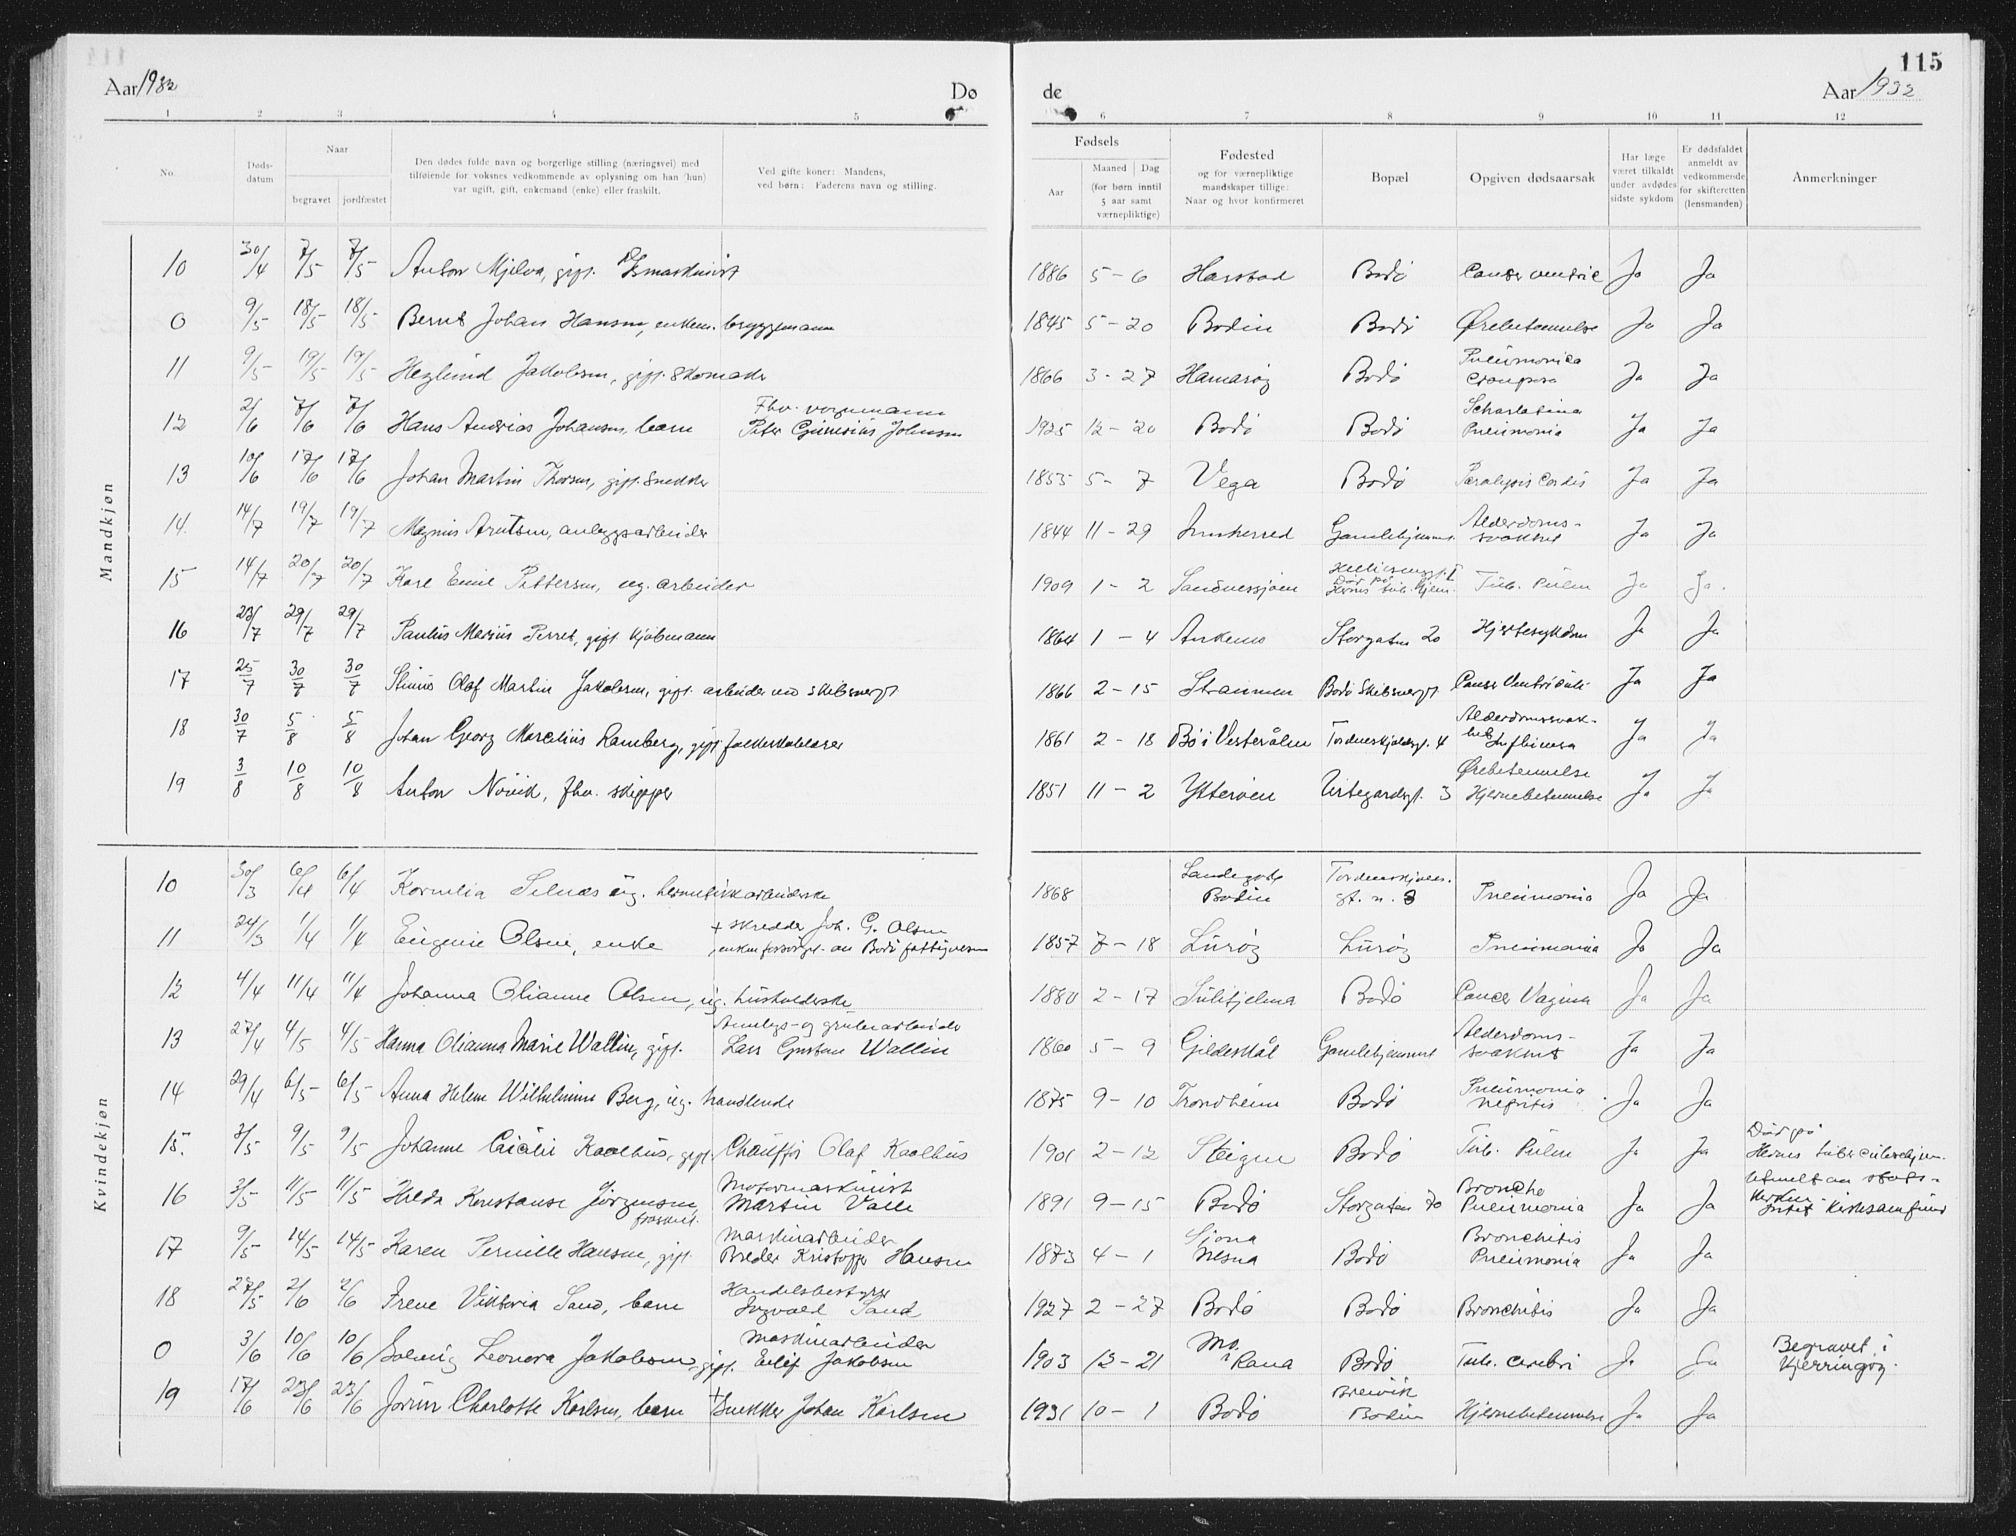 115
Aar 1932 Dø de Aar 1932
1 2 3 4 5 6 7 8 9 10 11 12
No.
Døds-
datum
Naar
begravet jordfæstet
Den dødes fulde navn og borgerlige stilling (næringsvei) med
tilføiende for voksnes vedkommende av oplysning om han (hun)
var ugift, gift, enkemand (enke) eller fraskilt.
Ved gifte koner: Mandens,
ved børn: Faderens navn og stilling.
Fødsels
Aar
Maaned Dag
(for børn inntil
5 aar samt
værnepliktige)
Fødested
og for værnepliktige
mandskaper tillige:
Naar og hvor konfirmeret
Bopæl
Opgiven dødsaarsak
Har læge
været tilkaldt
under avdødes
sidste sykdom
Er dødsfaldet
anmeldt av
vedkommende
for skifteretten
(lensmanden)
Anmerkninger
Mandkjøn
10 30/4 7/5 7/5 Anton Mjelva, gift. D/S maskinist 1886 5-6 Harstad Bodø Cancer ventric Ja Ja
0 9/5 18/5 18/5 Bernt Johan Hansen, enkem. bryggemann 1845 5-20 Bodin Bodø Ørebetennelse Ja Ja
11 9/5 19/5 19/5 Jakobsen, gift. skomaker 1866 3-27 Hamarøy Bodø Pneumonica crouposa Ja Ja
12 2/6 7/6 7/6 Hans Andreas Johansen, barn Fhv. vognmann Peter Johnsen 1925 12-20 Bodø Bodø Scharlatina Pneumonia Ja Ja
13 10/6 17/6 17/6 Johan Martin Thorsen, gift. snekker 1853 5-7 Vega Bodø Paralysis Cordis Ja Ja
14. 14/7 19/7 19/7 Magnus Arntsen, anleggsarbeider 1844 11-29 Innherred Gamlehjemmet Alderdoms-svakhet Ja Ja
15 14/7 20/7 20/7 Karl Emil Pettersen, ug. arbeider 1909 1-2 Sandnessjøen Død på Hernes tub. hjem. Tub. Pulm Ja Ja.
16 23/7 29/7 29/7 Paulus Marius Perret, gift kjøbmann 1864 1-4 Storgaten 20 Hjertesykdom Ja Ja
17 25/7 30/7 30/7 Olaf Martin Jakobsen, gift. arbeider ved skibsverft 1866 2-15 Straumen Bodø Skibsverft. Cancer Ventriculi Ja Ja
18 30/7 5/8 5/8 Johan Georg Marcelius Ramberg, gift folkeskolelærer 1861 2-18 Bø i Vesterålen Tordenskjoldsgt. 4 Alderdomssvak-het Influensa Ja Ja
19 3/8 10/8 10/8 Anton Növik, fhv. skipper 1851 11-2 Ytterøen Urtegardsgt. 3 Ørebetennelse Hjernebetennelse Ja Ja
Kvindekjøn
10 30/3 6/4 6/4 Kornelia Selnæs ug. hermetikkarbeiderske 1868 Landegode Bodin Tordenskjolds. gt. n. 3 Pneumonia Ja Ja
11 24/3 1/4 1/4 Eugenie Olsen, enke + skredder Joh. G. Olsen enken forsørget av Bodø fattigvesen 1857 7-18 Lurøy Lurøy Pneumonia Ja Ja
12 4/4 11/4 11/4 Johanna Olianne Olsen, ug. husholderske 1880 2-17 Sulitjelma Bodø Cancer Vagina Ja Ja
13 27/4 4/5 4/5 Hanna Olianna Marie Wallin, gift. Anlegs- og grubearbeider Lars Gustav Wallin 1860 5-9 Gildeskål Gamlehjemmet Alderdoms-svakhet Ja Ja
14 29/4 6/5 6/5 Anna Helene Wilhelmine Berg, ug. handlende 1875 9-10 Trondheim Bodø Pneumonia Nefritis Ja Ja
15. 3/5 9/5 9/5 Johanne Kaalhus, gift. Chauffør Olaf Kaalhus 1901 2-12 Steigen Bodø Tub. Pulm Ja Ja Død på Hernes tuberculosehjem.
16 3/5 11/5 11/5 Hilda Konstanse Jörgensen fraskilt. Motormaskinist Martin Valle 1891 9-15 Bodø Storgaten 70 Broncho Pneumonia Ja Ja Utmeldt av stats-kirken - Intet kirkesamfund
17 9/5 14/5 14/5 Karen Pernille Hansen, gift Maskinarbeider Peder Kristoffer Hansen 1873 4-1 Sjona Nesna Bodø Bronchitis Pneumonia Ja Ja
18 27/5 2/6 2/6 Irene Viktoria Sand, barn Handelsbestyrer Ingvald Sand 1927 2-27 Bodø Bodø Bronchitis Ja Ja
0 3/6 10/6 10/6 Solveig Leonora Jakobsen, gift. Maskinarbeider Eilif Jakobsen 1903 12-21 Mo i Rana Bodø Tub. cerebri Ja Ja Begravet i Kjerringøy.
19 17/6 23/6 23/6 Jorun Charlotte Karlsen, barn + Snekker Johan Karlsen 1931 10-1 Bodø Breivik Bodin Hjernebetennelse Ja Ja